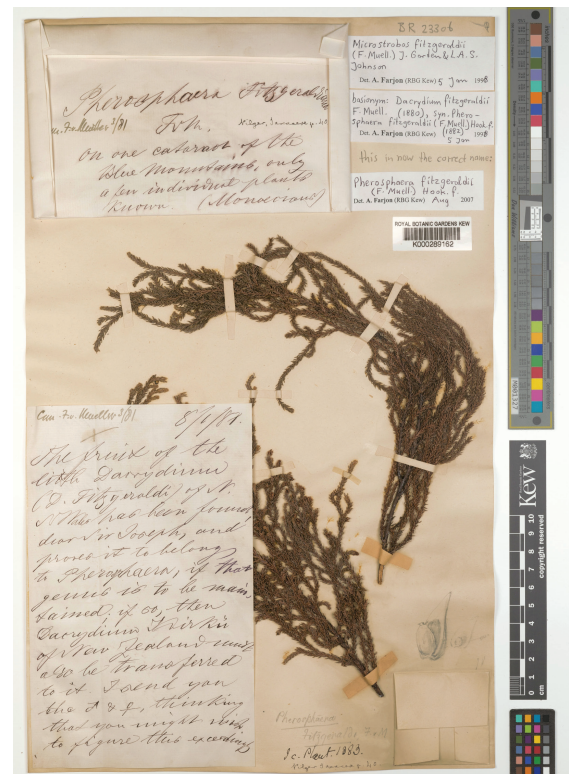 BR 23306
Microstrobos fitzgeraldii
(F. Muell.) J. Garden & L.A.S.
Johnson
Det. A. Farjon (RBG Kew) 5 Jan 1998
basionym: Dacrydium fitzgeraldii
F. Muell. (1880), syn. Phero-
sphaera fitzgeraldii (F. Muell.) Hook f.
(1882)
Det. A. Farjon (RBG Kew) 1998
5 Jan
this is now the correct name:
Pherosphaera fitzgeraldii
(F. Muell.) Hook. f.
Det. A. Farjon (RBG Kew) Aug 2007
ROYAL BOTANIC GARDENS KEW
K000289162
Pherosphaera Fitzgeraldi
FvM.
on one cataract of the
Blue Mountains, only
a few individual plants
known. (Monoecious)
Com. F.v. Mueller 3/81
8/1/81.
The fruit of the
little Dacrydium
(D. Fitzgeraldi) of N.
S. Wales has been found,
dear Sir Joseph, and
proves it to belong
to Pherosphaera, if that
genus is to be main-
tained. if so, then
Dacrydium Kirkii
of New Zealand must
also be transferred
to it. I send you
the ♂ & ♀, thinking
that you might wish
to figure this exceedingly
Pherosphaera
Fitzgeraldi, F.v.M.
Ic. Plant. 1383.
Kew
copyright reserved
0 1 2 3 4 5 6 7 8 9 10
cm